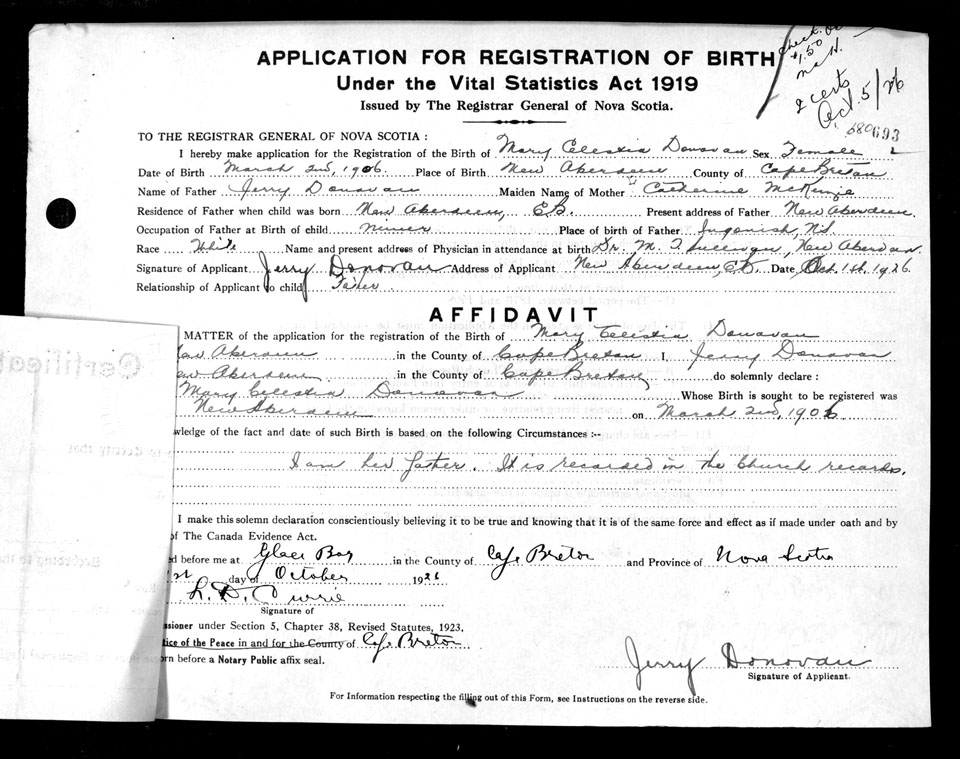 APPLICATION FOR REGISTRATION OF BIRTH
Under the Vital Statistics Act 1919
Issued by The Registrar General of Nova Scotia.
check
$1.50
2 certs
Oct. 5/26
693
TO THE REGISTRAR GENERAL OF NOVA SCOTIA :
I hereby make application for the Registration of the Birth of Mary Celestia Donovan Sex Female
Date of Birth March 2nd, 1906. Place of Birth New Aberdeen County of Cape Breton
Name of Father Jerry Donovan Maiden Name of Mother Catherine McKenzie
Residence of Father when child was born New Aberdeen, C.B. Present address of Father New Aberdeen.
Occupation of Father at Birth of child miner Place of birth of Father Ingonish, N.S.
Race White Name and present address of Physician in attendance at birth Dr. M. T. Sullivan, New Aberdeen.
Signature of Applicant Jerry Donovan Address of Applicant New Aberdeen, C.B. Date Oct. 1st. 1926.
Relationship of Applicant to child Father
AFFIDAVIT
MATTER of the application for the registration of the Birth of Mary Celestia Donavan
New Aberdeen in the County of Cape Breton I Jerry Donovan
ew Aberdeen in the County of Cape Breton do solemnly declare :
Mary Celestia Donovan Whose Birth is sought to be registered was
New Aberdeen on March 2nd, 1906
wledge of the fact and date of such Birth is based on the following Circumstances :--
I am her father. It is recorded in the Church records.
I make this solemn declaration conscientiously believing it to be true and knowing that it is of the same force and effect as if made under oath and by
of The Canada Evidence Act.
ed before me at Glace Bay in the County of Cape Breton and Province of Nova Scotia
1st day of October 1926
L. D. Currie
Signature of
issioner under Section 5, Chapter 38, Revised Statutes, 1923.
tice of the Peace in and for the County of Cape Breton
rn before a Notary Public affix seal.
Jerry Donovan
Signature of Applicant.
For Information respecting the filling out of this Form, see Instructions on the reverse side.